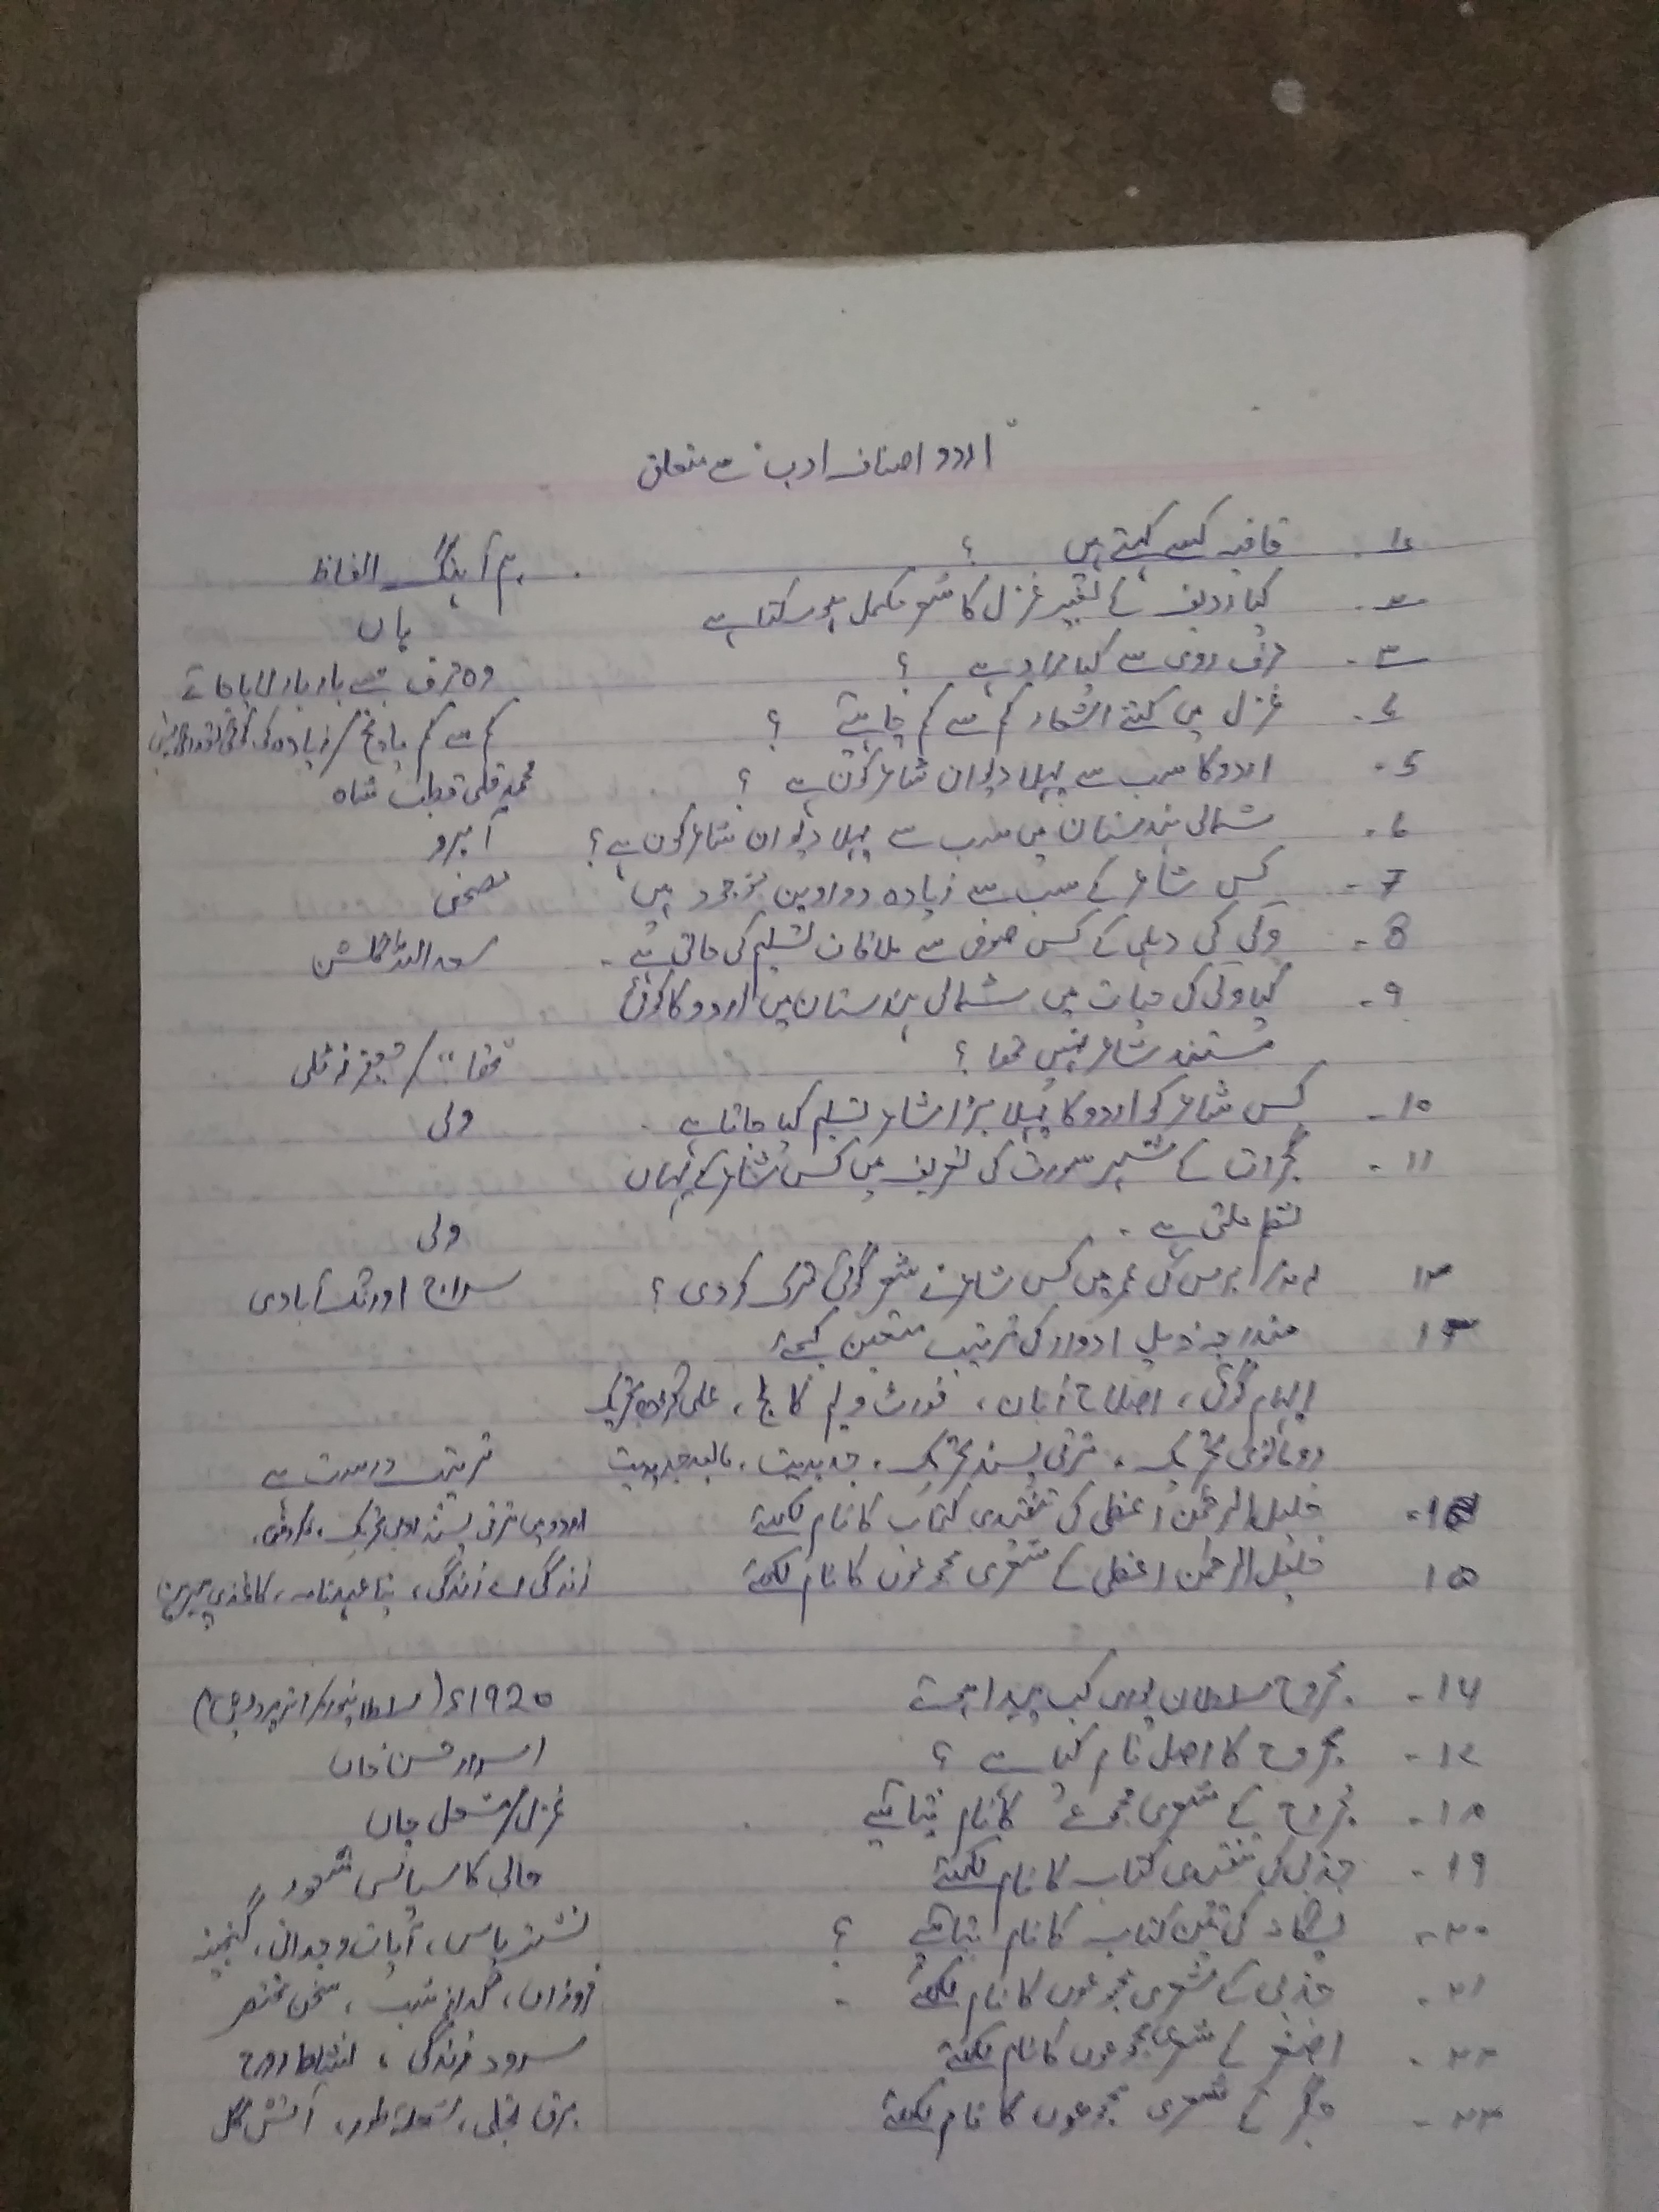 "اردو اصناف ادب" سے متعلق
1- قافیہ کسے کہتے ہیں ؟ ہم آہنگ الفاظ
2- کیا ردیف کے بغیر غزل کا شعر مکمل ہو سکتا ہے ہاں
3- حرف روی سے کیا مراد ہے ؟ وہ حرف جسے بار بار لایا جائے
4- غزل میں کتنے اشعار کم سے کم چاہیئے ؟ کم سے کم پانچ / زیادہ کی کوئی تعداد نہیں
5- اردو کا سب سے پہلا دیوان شاعر کون ہے ؟ محمد قلی قطب شاہ
6- شمالی ہندستان میں سب سے پہلا دیوان شاعر کون ہے ؟ آبرو
7- کس شاعر کے سب سے زیادہ دواوین موجود ہیں مصحفی
8- ولی کی دہلی کے کس صوفی سے ملاقات تسلیم کی جاتی ہے - سعد اللہ گلشن
9- کیا ولی کی حیات میں شمالی ہندستان میں اردو کا کوئی
مستند شاعر نہیں تھا ؟ "تھا" / جعفر زٹلی
10- کس شاعر کو اردو کا پہلا بڑا شاعر تسلیم کیا جاتا ہے - ولی
11- گجرات کے شہر سورت کی تعریف میں کس شاعر کے یہاں
نظم ملتی ہے - ولی
12 برس کی عمر میں کس شاعر نے شعر گوئی ترک کر دی ؟ سراج اورنگ آبادی
13 مندرجہ ذیل ادوار کی ترتیب متعین کیجئے
ایہام گوئی ، اصلاح زبان ، فورٹ ولیم کالج ، علی گڑھ تحریک
رومانوی تحریک ، ترقی پسند تحریک ، جدیدیت ، مابعد جدیدیت ترتیب درست ہے
14- خلیل الرحمن اعظمی کی تنقیدی کتاب کا نام لکھئے اردو میں ترقی پسند ادبی تحریک،
15 خلیل الرحمن اعظمی کے شعری مجموعوں کا نام لکھئے زندگی اے زندگی ، نیا عہد نامہ ، کاغذی پیرہن
۱۶- مجروح سلطان پوری کب پیدا ہوئے 1920ء (سلطانپور، اتر پردیش)
۱۷- مجروح کا اصل نام کیا ہے ؟ اسرار حسن خاں
۱۸- مجروح کے شعری مجموعے کا نام بتائیے - غزل / مشعل جاں
۱۹- جذبی کی تنقیدی کتاب کا نام لکھئے حالی کا سیاسی شعور
۲۰- یگانہ کی تین کتاب کا نام بتائیے ؟ نشتر یاس ، آیات وجدانی ، گنجینہ
۲۱- جذبی کے شعری مجموعوں کا نام لکھئے - فروزاں ، گداز شب ، سخن مختصر
۲۲- اصغر کے شعری مجموعوں کا نام لکھئے سرود زندگی ، نشاط روح
۲۳- جگر کے شعری مجموعوں کا نام لکھئے برق تجلی ، شعلہ طور ، آتش گل